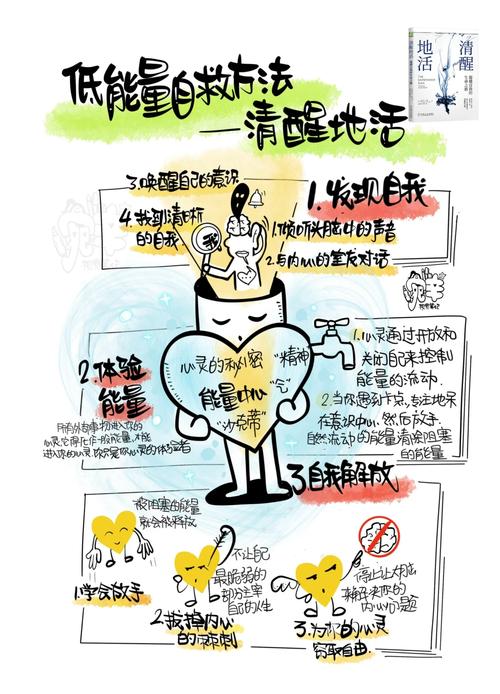 低能量自救方法
——清醒地活
清醒
地活
1.发现自我
1.倾听头脑中的声音
2.与内心的室友对话
3.唤醒自己的意识
4.找到清晰
的自我
我
2.体验
能量
所有外部事物进入你的
进入你的心灵,你只是你心灵的体验者
心灵的秘密
能量中心
"精神"
"气"
"沙克蒂"
1.心灵通过开放和
关闭自己来控制
能量的流动.
2.当你遇到卡点,专注地保
在意识中心,然后放手.
自然流动的能量清候阻塞
的能量
3自我解放
被阻塞的能量
就会被释放
1.学会放手
不让自己
最脆弱的
部分主宰
自己的人生
2.拔掉内心
的刺
停止让大脑
解决你的
内心问题
3.为你的心灵
窃取自由.